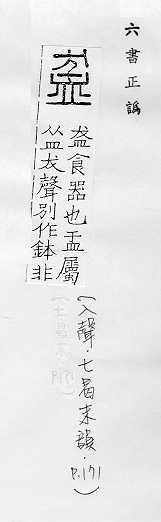 六書正譌
盋
盋食器也盂屬
从皿犮聲別作鉢非
(入聲．七曷末韻．P.171)